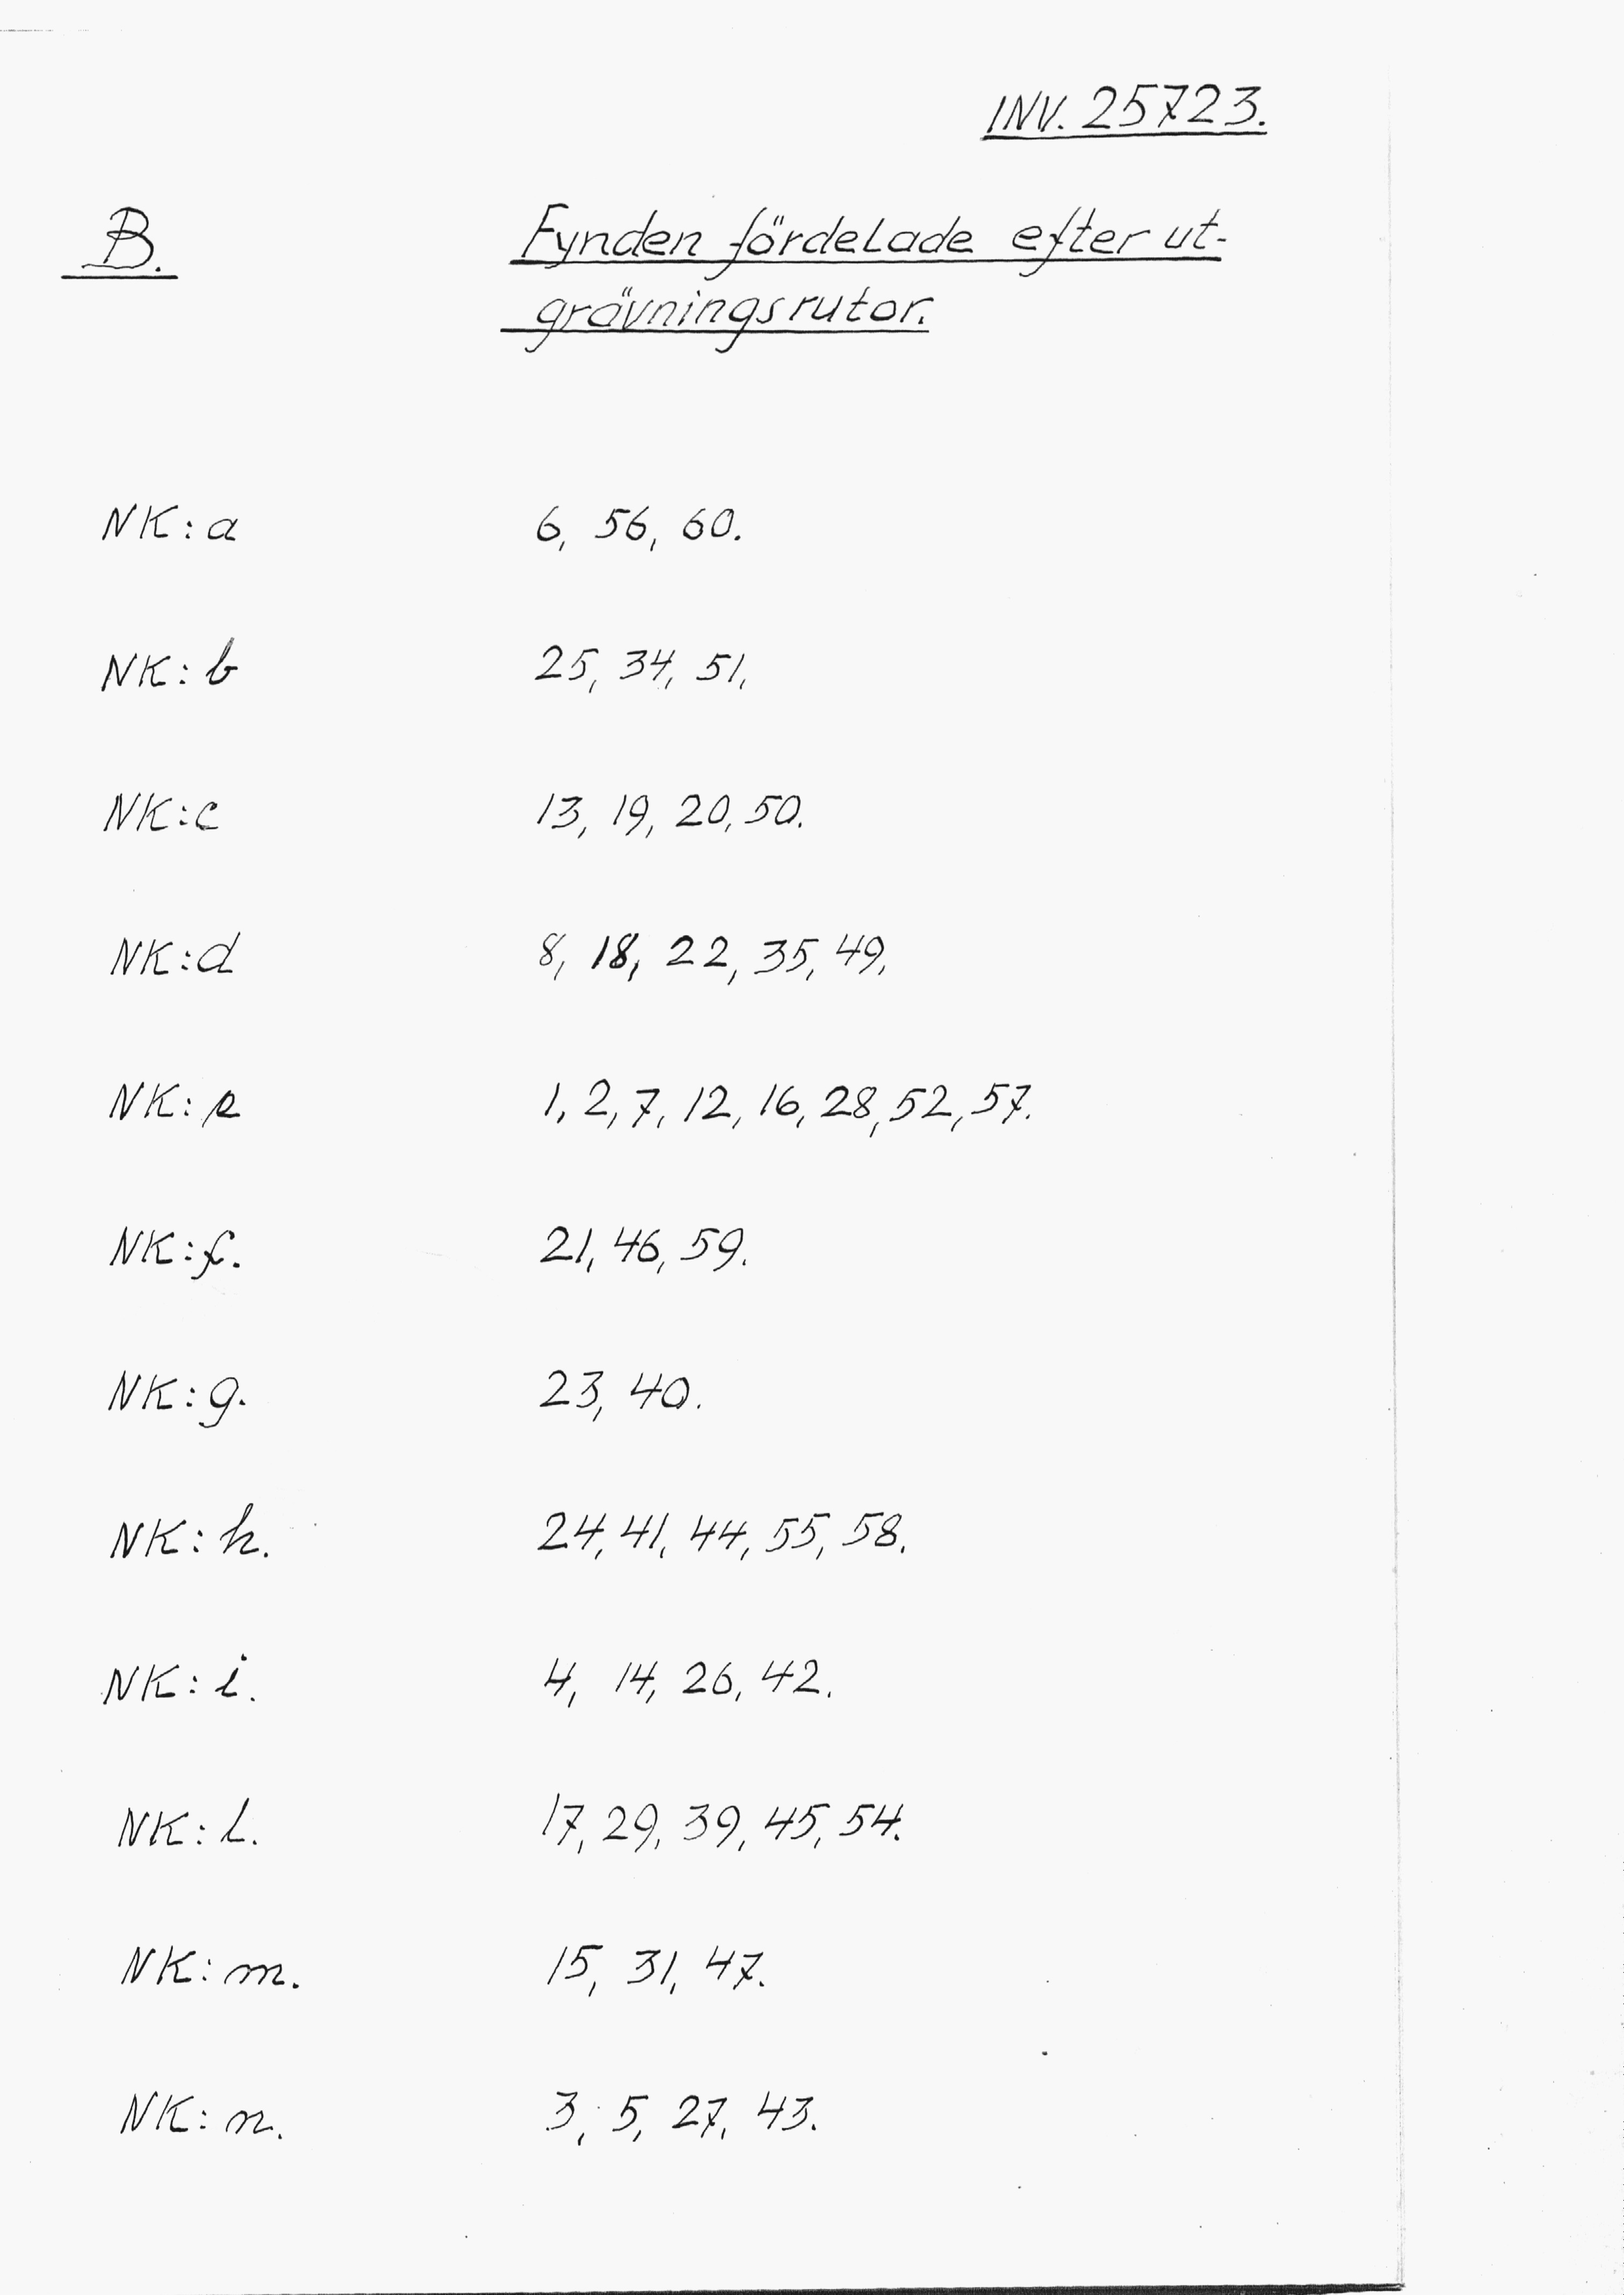 INV. 25723.
B. Fynden fördelade efter ut-
grävningsrutor.
NK: a 6, 56, 60.
NK: b 25, 34, 51,
NK: c 13, 19, 20, 50.
NK: d 8, 18, 22, 35, 49,
NK: e 1, 2, 7, 12, 16, 28, 52, 57.
NK: f. 21, 46, 59.
NK: g. 23, 40.
NK: h. 24, 41, 44, 55, 58.
NK: i. 4, 14, 26, 42.
NK: l. 17, 29, 39, 45, 54.
NK: m. 15, 31, 47.
NK: n. 3, 5, 27, 43.